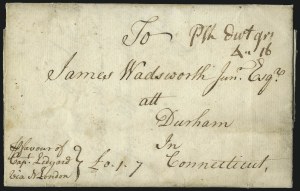 To
James Wadsworth Junr. Esqr.
att
Durham
In
Connecticut,
favour of
Capt. Ledyard
via N London
£0.1.7